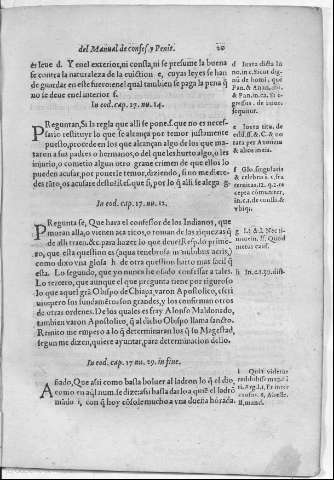 del Manual de confes. y Penit. 20
es leue d. Y en el exterior, ni consta, ni se presume la buena
se contra la naturaleza de la euiction e, cuyas leyes se han
de guardar en este fuero: en el qual tambien se paga la pena q̃
no se deue en el interior f.
In eod. cap. 17. nu. 14.
PReguntan, Si la regla que alli se pone s. que no es neces-
sario restituyr lo que se alcança por temor justamente
puesto, procede en los que alcançan algo de los que ma-
taron a sus padres o hermanos, o del que les hurto algo, o les
injurio, o cometio algun otro graue crimen de que ellos lo
pueden acusar, por ponerle temor, diziendo, si no me dierе-
des tãto, os acusare desto? R. es. que si, por lo q̃ alli se alega g
In eod. cap. 17. nu. 12.
PRegunta se, Que hara el confessor de los Indianos, que
moran alla, o vienen aca ricos, o toman de las riquezas q̃
de alli traen. &c. para hazer lo que deue? Resp. lo prime-
ro, que esta question es (aqua tenebrosa in nubibus aeris,)
como dixo vna glosa h de otra question harto mas facil q̃
esta. Lo segundo, que yo nunca he osado confessar a tales.
Lo tercero, que aunque el que pregunta tiene por riguroso
lo que aquel grã Obispo de Chiapa, varon Apostolico, escri
uio: pero sus fundamẽtos son grandes, y los confirman otros
de otras ordenes. De los quales es fray Alonso Maldonado,
tambien varon Apostolico, q̃ al dicho Obispo llama sancto.
Remito me empero a lo q̃ determinaran los q̃ su Magestad,
segun me dizen, quiere ayuntar, para determinacion dello.
In eod. cap. 17 nu. 29. in fine.
AÑado, Que assi como basta boluer al ladron lo q̃ el dio,
como en aq̃l num. se dize: assi basta dar lo a quiẽ el ladrõ
mãdo i, con q̃ hoy cõsole mucho a vna dueña hõrada.
d Iuxta dicta In-
no. in c. Sicut dig-
nũ de homi. quẽ
Pan. &amp; Anan. ibi.
e Iuxta tit. de
f Glo. singularis
&amp; celebris
g l. 1. &amp; l. Nec ti-
morem. ff. Quod
metus caus.
h In. c. 1. 37. dist.
i Quia videtur